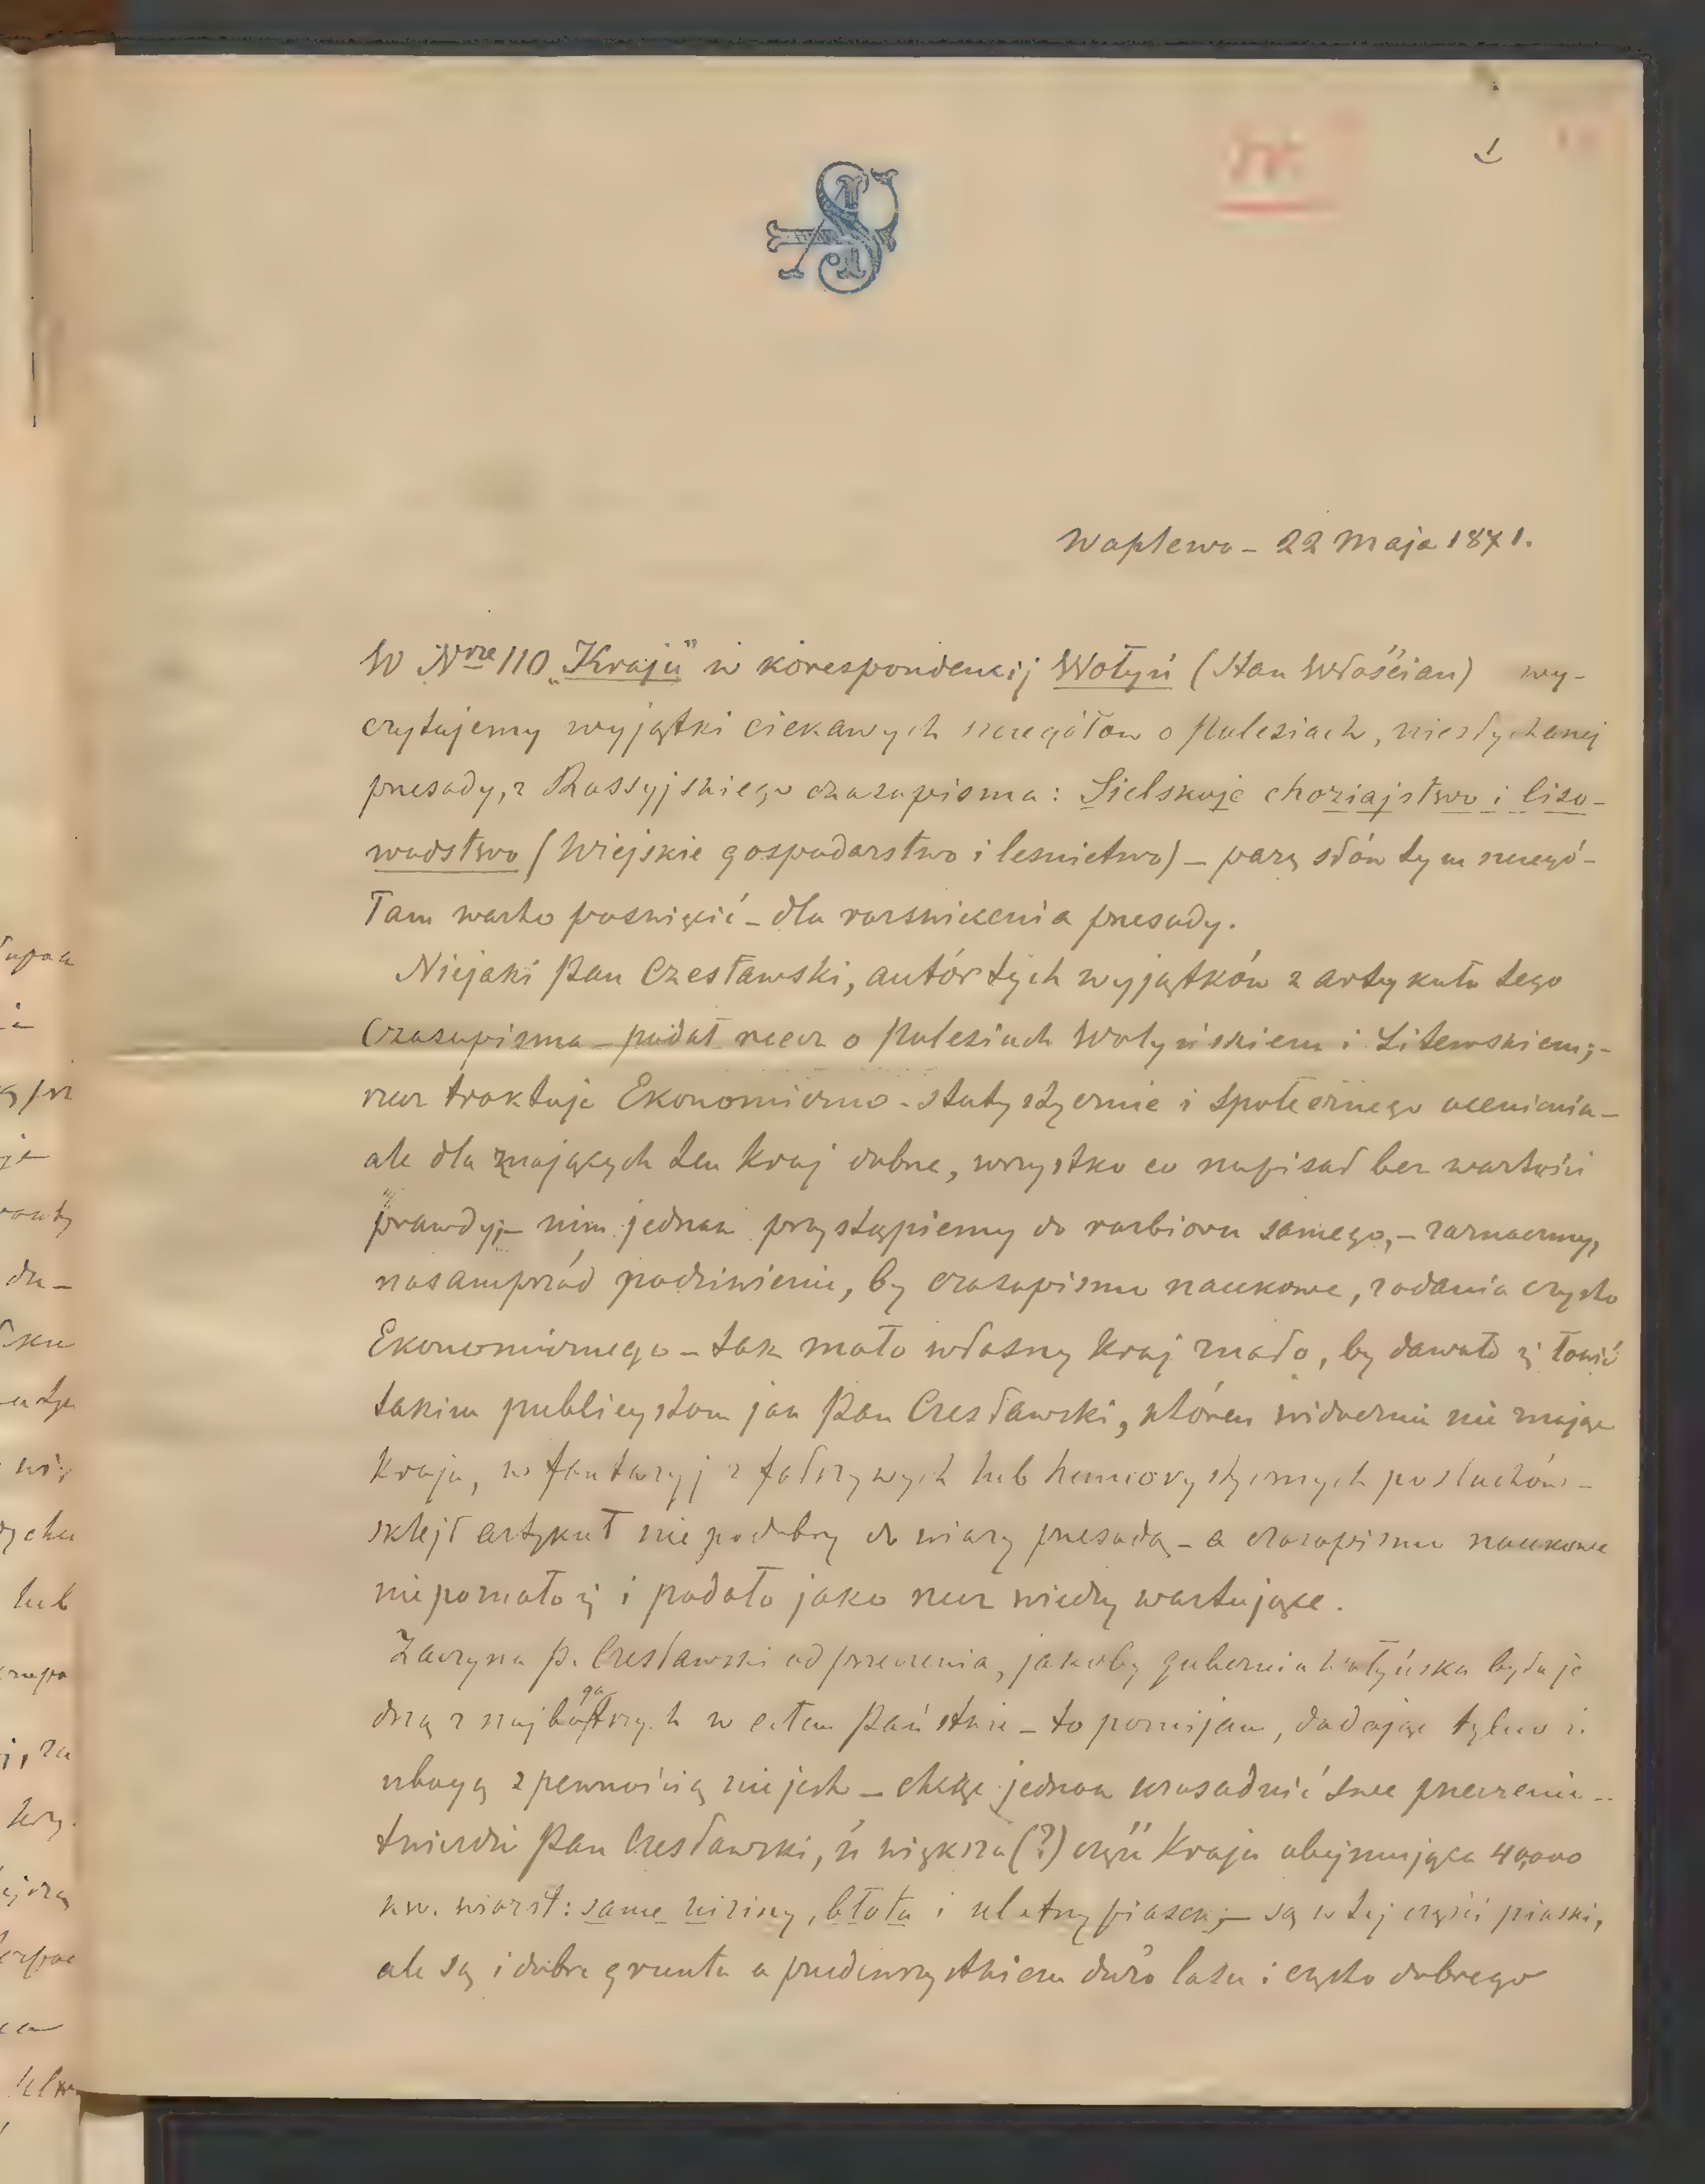 Waplewo – 22 Maja 1871.
W Nrze 110 „Kraju” w korespondencij Wołyń (Stan Włościan) wy-
czytujemy wyjątki ciekawych szczegółow o Polesiach, niesłychanej
przesady, z Rossyjskiego czasopisma: Sielskoje choziajstwo i liso-
wodstwo (Wiejskie gospodarstwo i lesnictwo) – parę słów tym szczegó-
łam warto poswięcić – dla rozswiecenia przesady.
Niejaki Pan Czesławski, autór tych wyjątków z artykułu tego
Czasopisma – podał rzecz o Polesiach Wołyńskiem i Litewskiem; –
rzecz traktuje Ekonomiczno-statystycznie i społecznego ocenienia –
ale dla znających ten Kraj dobrze, wszystko co napisał bez wartości
prawdy; – nim jednak przystąpiemy do rozbioru samego, – zaznaczmy,
nasamprzód podziwienie, by czasopismo naukowe, zadania czysto
Ekonomicznego – tak mało własny Kraj znało, by dawało się łowić
takim publicystom jak Pan Czesławski, któren widocznie nie znając
Kraju, w fantazyj z fałszywych lub humorystycznych posłuchów –
sklejł artykuł nie podobny do wiary przesadą – a czasopismo naukowe
niepoznało się i podało jako rzecz wiedzy wartujące.
Zaczyna p. Czesławski od przeczenia, jakoby gubernia Wołyńska była je
dną z najbogatszych w całem Państwie – to pomijam, dodając tylko iż
ubogą z pewnością nie jest – chcąc jednak uzasadnić swe przeczenie –
twierdzi Pan Czesławski, iż większa (?) część Kraju obejmująca 40,000
kw. wiorst: same niziny, błota i ulotny piasek; – są w tej części piaski,
ale są i dobre grunta a przedewszystkiem dużo lasu i często dobrego